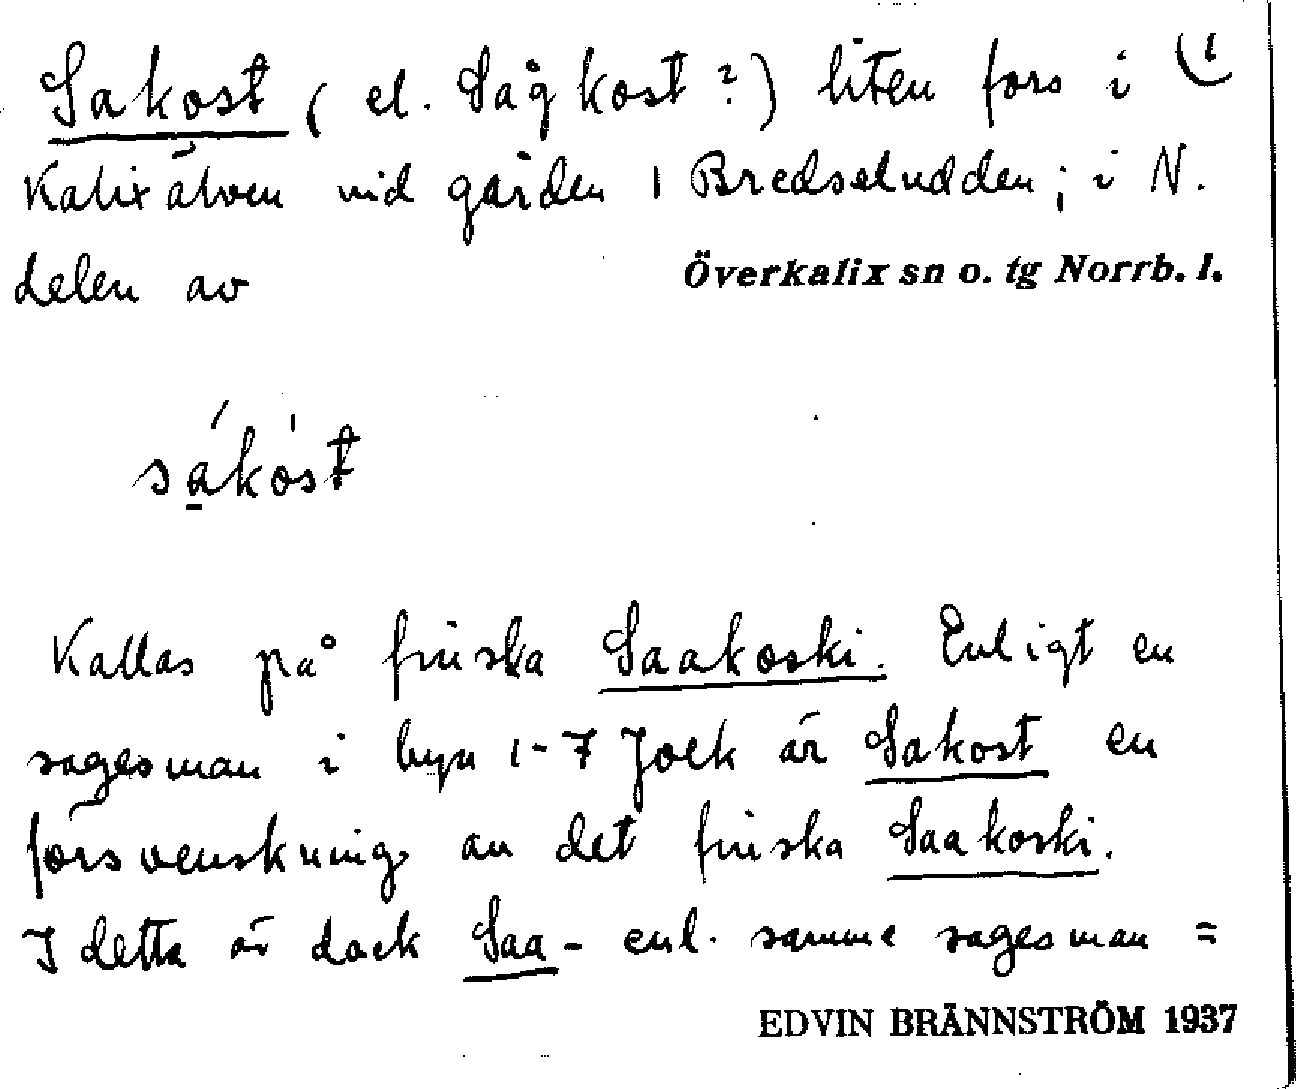 Sakost (el. Sågkost?) liten fors i (1
Kalixälven vid gården 1 Bredseludden; i N.
delen av Överkalix sn o. tg Norrb. l.
sá̲kòst
Kallas på finska Saakoski. Enligt en
sagesman i byn 1-7 Jock är Sakost en
försvenskning av det finska Saakoski.
I detta är dock Saa- enl. samme sagesman =
EDVIN BRÄNNSTRÖM 1937